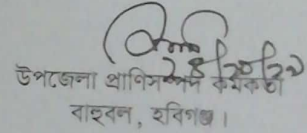 ২৪/১০/২১
উপজেলা প্রাণিসম্পদ কর্মকর্তা
বাহুবল, হবিগঞ্জ।